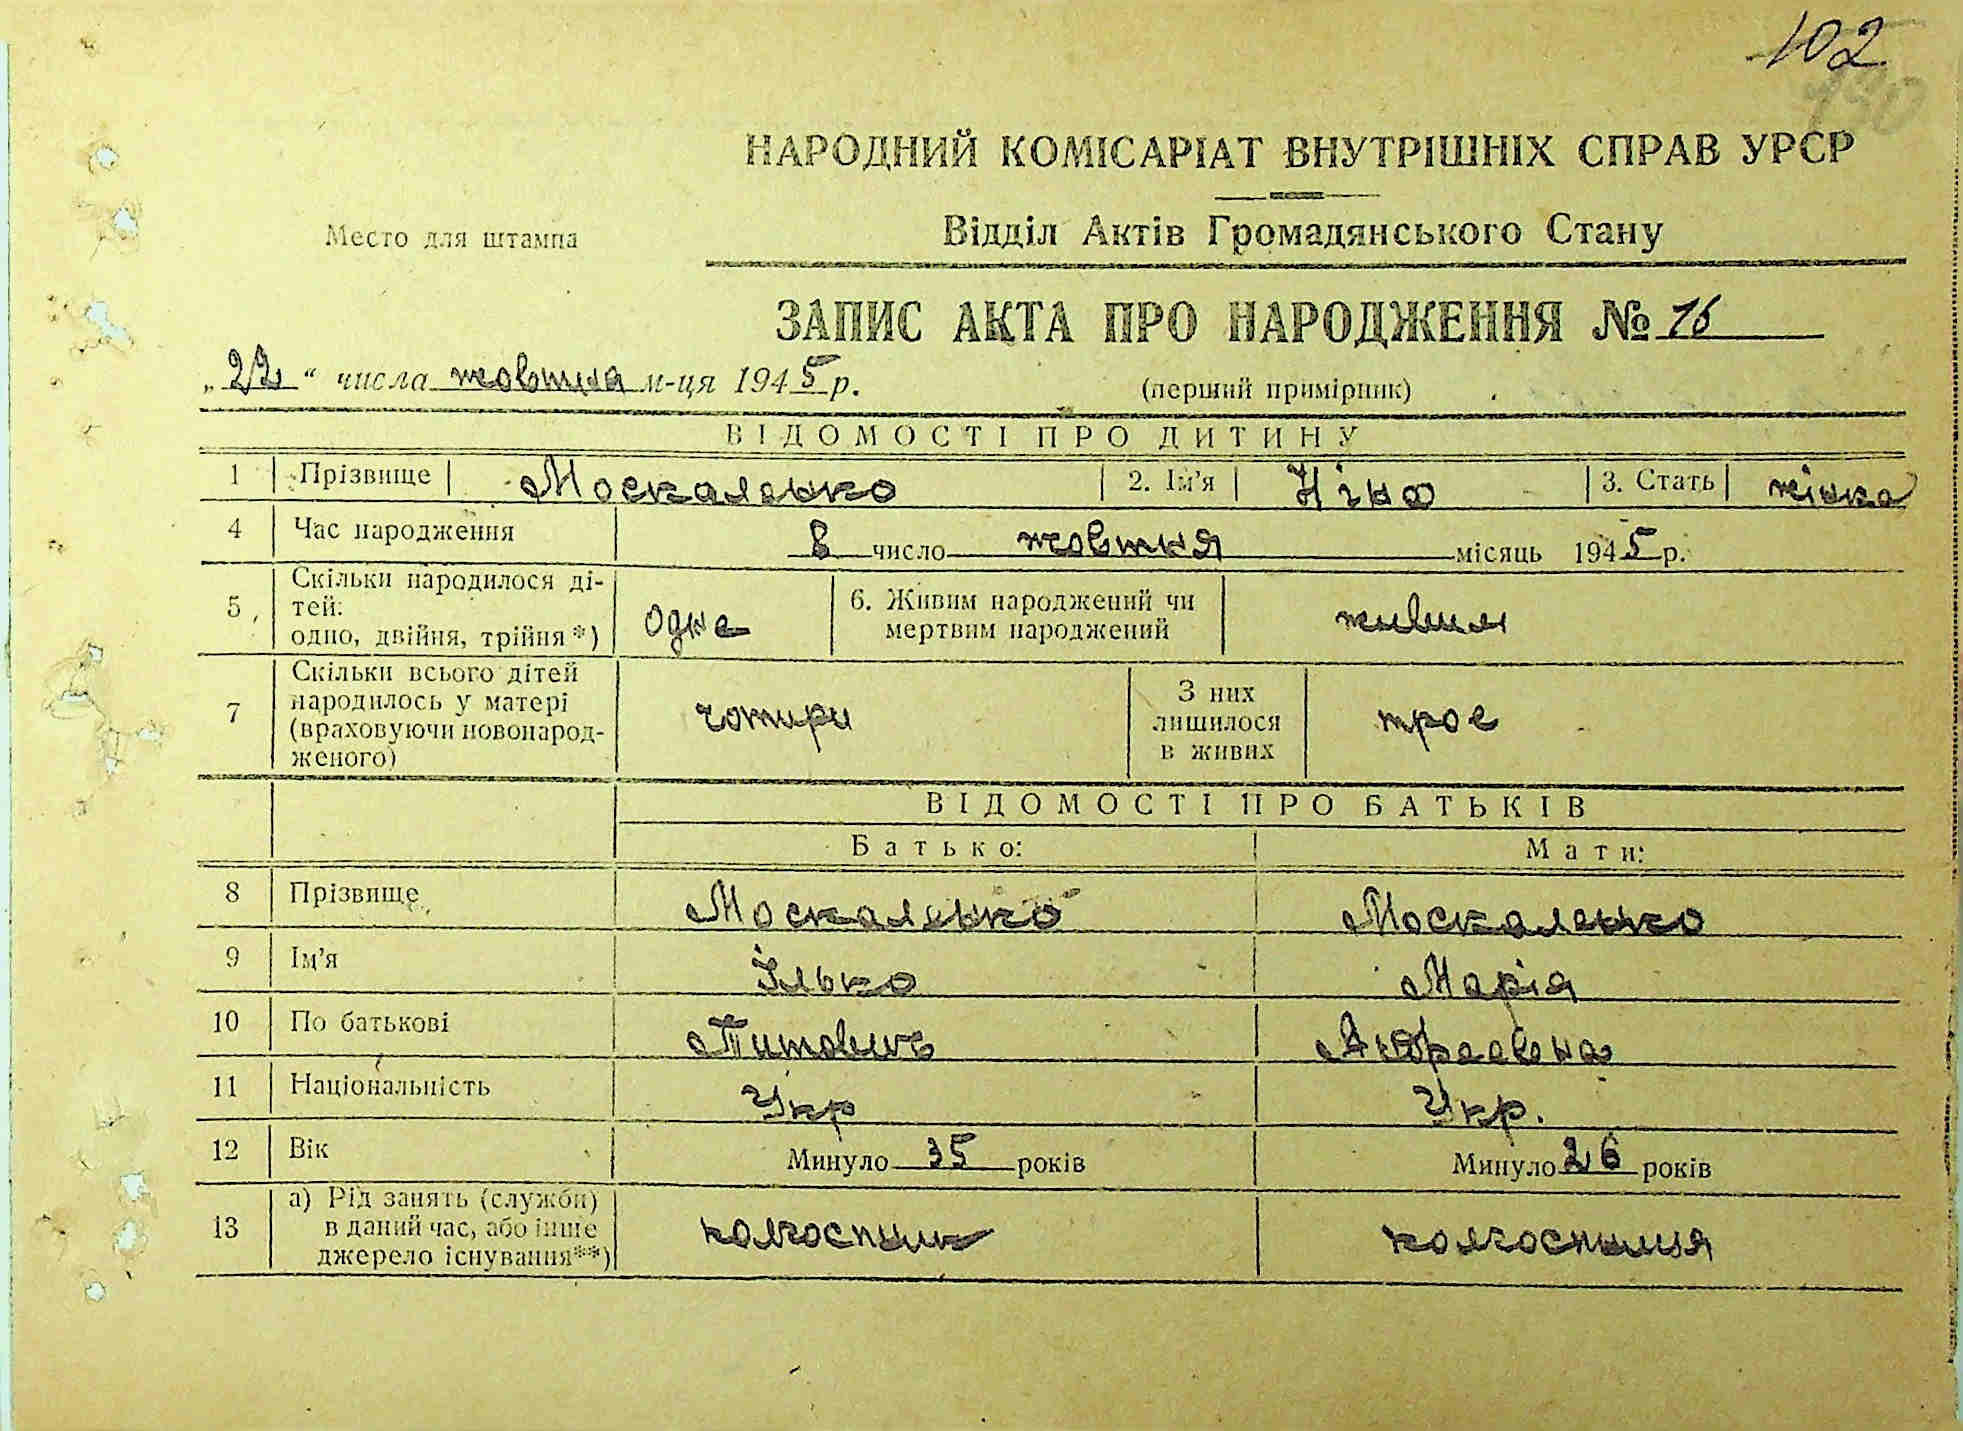 102
НАРОДНИЙ КОМІСАРІАТ ВНУТРІШНІХ СПРАВ УРСР
Место для штампа
Відділ Актів Громадянського Стану
ЗАПИС АКТА ПРО НАРОДЖЕННЯ № 16
„22“ числа жовтня м-ця 1945 р.
(перший примірник)
ВІДОМОСТІ ПРО ДИТИНУ
1 Прізвище Москаленко 2. Ім'я Ніна 3. Стать жінка
4 Час народження 8 число жовтня місяць 1945 р.
5 Скільки народилося ді-
тей:
одно, двійня, трійня*) одне 6. Живим народжений чи
мертвим народжений живим
7 Скільки всього дітей
народилось у матері
(враховуючи новонарод-
женого) чотири З них
лишилося
в живих трое
ВІДОМОСТІ ПРО БАТЬКІВ
Батько: Мати:
8 Прізвище Москаленко Москаленко
9 Ім'я Ілько Марія
10 По батькові Титович Андреевна
11 Національність Укр Укр.
12 Вік Минуло 35 років Минуло 26 років
13 а) Рід занять (служби)
в даний час, або інше
джерело існування**) колгоспник колгоспниця